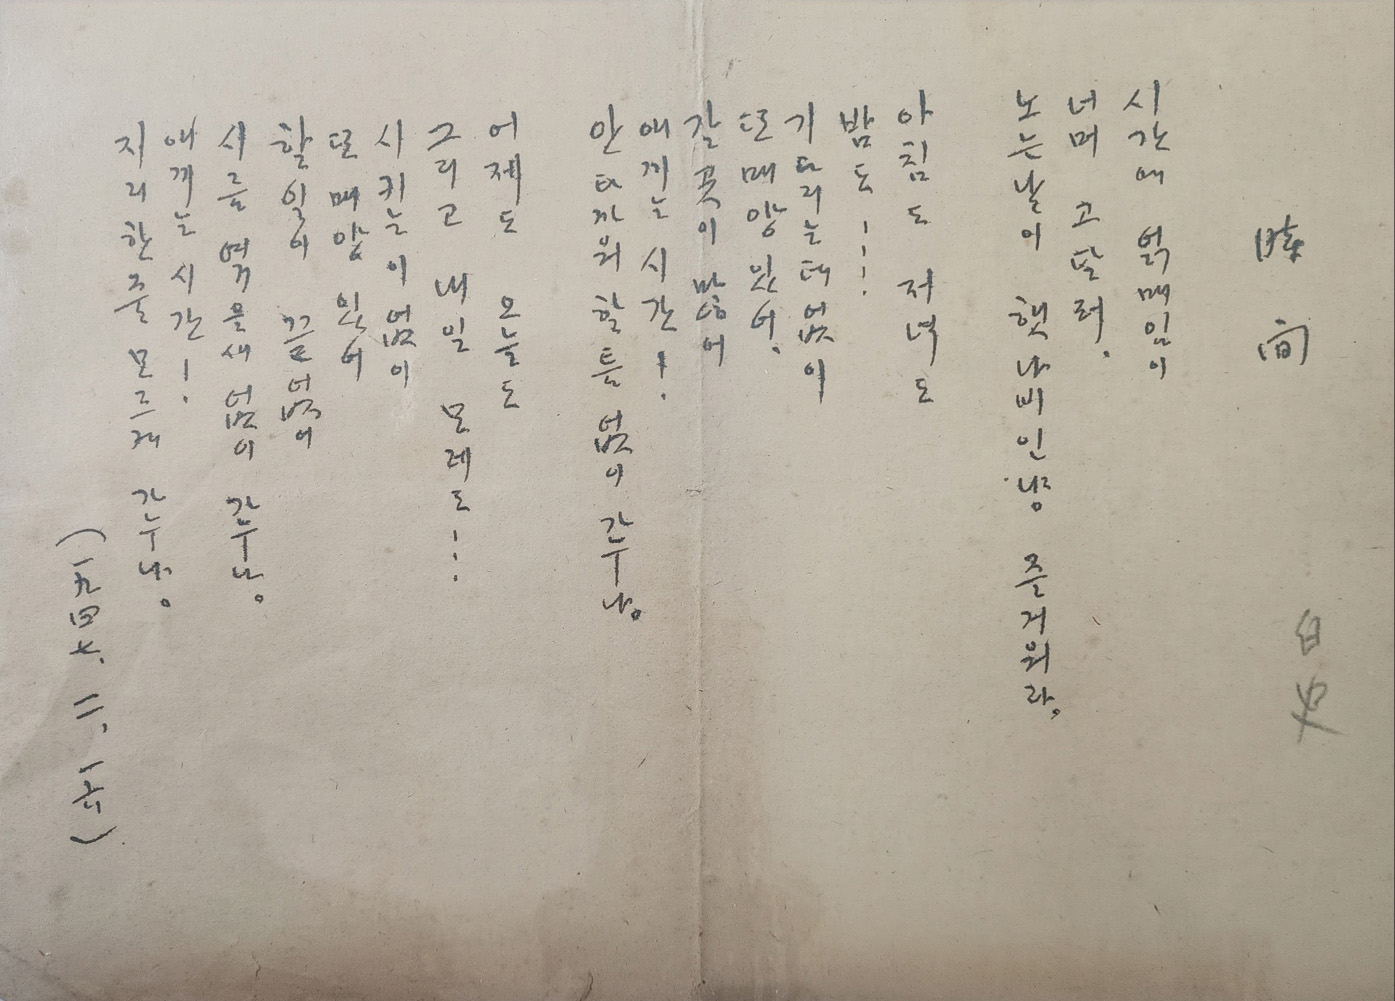 時間
白史
시간에 얽매임이
너머 고달러.
노는날이 햇나비인냥 즐거워라。
아침도 저녁도
밤도⋯⋯
기다리는데없이
또매양있어.
갈곳이 많어
애끼는 시간!
안타까워할틈 없이 간누나。
어제도 오늘도
그리고 내일 모레도⋯⋯
시키는이 없이
또매양 있어
할일이 끝없어
시름 엮을새 없이 간누나。
애끼는 시간!
지리한줄 모르게 간누나。
(一九四七. 二, 一六)